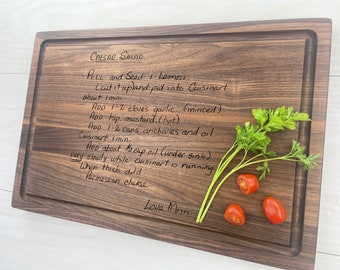 Caesar Salad
Peel and Seed 1 Lemon.
Cut it up and put into Cuisinart
about 1 min.
Add 1-2 cloves garlic. (minced)
Add 1 tsp. mustard. (hot)
Add 1-2 cans anchovies and oil
Cuisinart 1 min.
Add about ½ cup oil (under sink)
very slowly while cuisinart is running
When thick add
Parmesan cheese
Love Mom